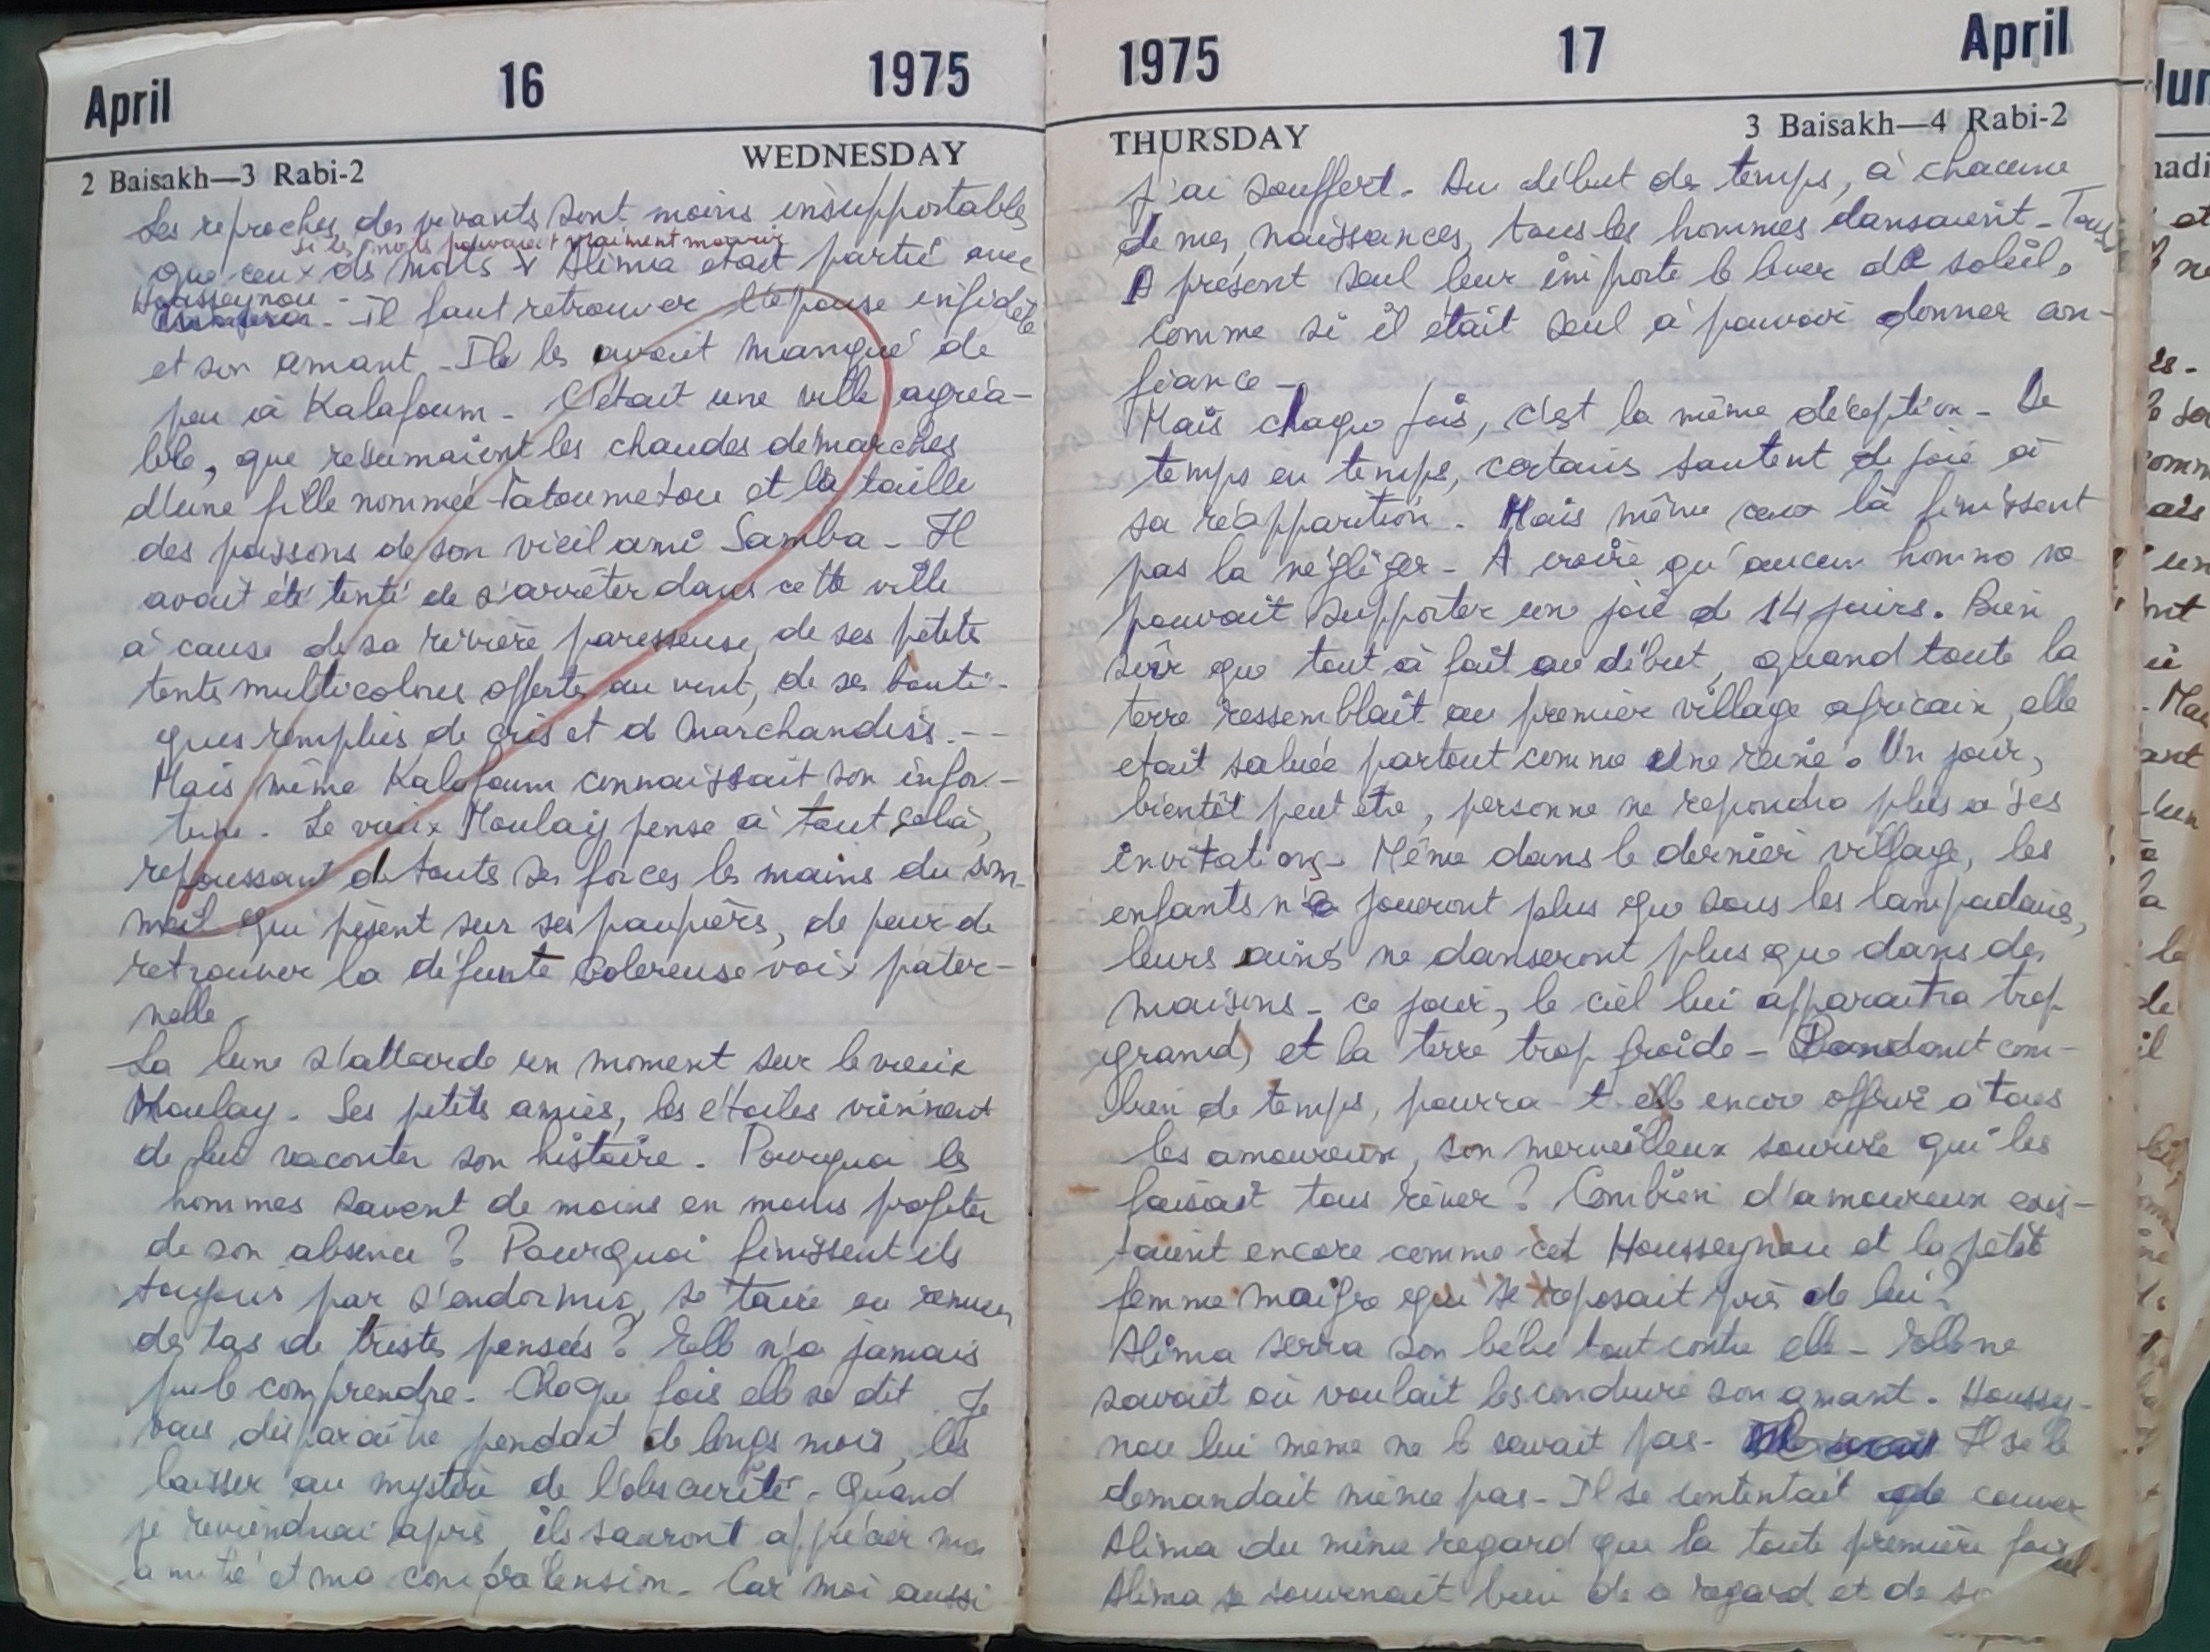 April 16 1975
WEDNESDAY
2 Baisakh—3 Rabi-2
Les reproches des vivants sont moins insupportables
si les morts pouvaient vraiment mourir
que ceux des morts Alima etait partie avec
Housseynou -
Il faut retrouver l'épouse infidèle
et son amant - Il les avait manqué de
peu à Kalafoum - C'etait une ville agréa-
ble, que résumaient les chaudes démarches
d'une fille nommée Fatoumetou et la taille
des poissons de son vieil ami Samba - Il
avait été tenté de s'arrêter dans cette ville
à cause de sa rivière paresseuse, de ses petites
tentes multicolores offertes au vent, de ses bouti-
ques remplies de cris et de marchandises. - -
Mais même Kalafoum connaissait son infor-
tune. Le vieux Moulay pense à tout celà,
repoussant de toutes ses forces les mains du som-
meil qui pèsent sur ses paupières, de peur de
retrouver la défunte colereuse voix pater-
nelle
La lune s'attarde un moment sur le vieux
Moulay. Ses petites amies, les étoiles viennent
de lui raconter son histoire. Pourquoi les
hommes savent de moins en moins profiter
de son absence ? Pourquoi finissent ils
toujours par s'endormir, se taire ou remuer
des tas de tristes pensées ? Elle n'a jamais
pu le comprendre. Chaque fois elle se dit Je
vais disparaître pendant de longs mois, les
laisser au mystère de l'obscurité. Quand
je reviendrai après, ils sauront apprécier mon
amitié et ma compréhension. Car moi aussi
1975 17 April
THURSDAY
3 Baisakh—4 Rabi-2
j'ai souffert. Au début des temps, à chacune
de mes naissances, tous les hommes dansaient - Tous
A présent seul leur importe le lever de soleil,
comme si il était seul à pouvoir donner con-
fiance -
Mais chaque fois, c'est la même déception - De
temps en temps, certains sautent de joie à
sa réapparition. Mais même ceux là finissent
pas la négliger - A croire qu'aucun homme ne
pouvait supporter une joie de 14 jours. Bien
sûr que tout à fait au début, quand toute la
terre ressemblait au premier village africain, elle
etait saluée partout comme une reine. Un jour,
bientôt peut etre, personne ne repondra plus a ses
invitations - Même dans le dernier village, les
enfants ne joueront plus que sous les lampadaires,
leurs ainés ne danseront plus que dans des
maisons - ce jour, le ciel lui apparaitra trop
grand, et la terre trop froide - Pendant com-
bien de temps, pourra-t-elle encore offrir a tous
les amoureux, son merveilleux sourire qui les
faisait tous rêver ? Combien d'amoureux exis-
taient encore comme cet Housseynou et la petite
femme maigre qui se reposait près de lui ?
Alima serra son bébé tout contre elle - Elle ne
savait où voulait les conduire son amant. Houssey-
nou lui meme ne le savait pas - Il se le
demandait même pas - Il se contentait de couver
Alima du même regard que la toute première fois
Alima se souvenait bien de ce regard et de